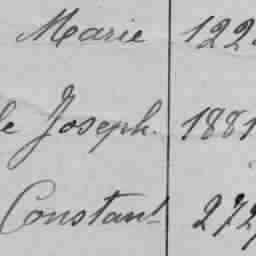 Marie 122
le Joseph. 1881
Constant 272